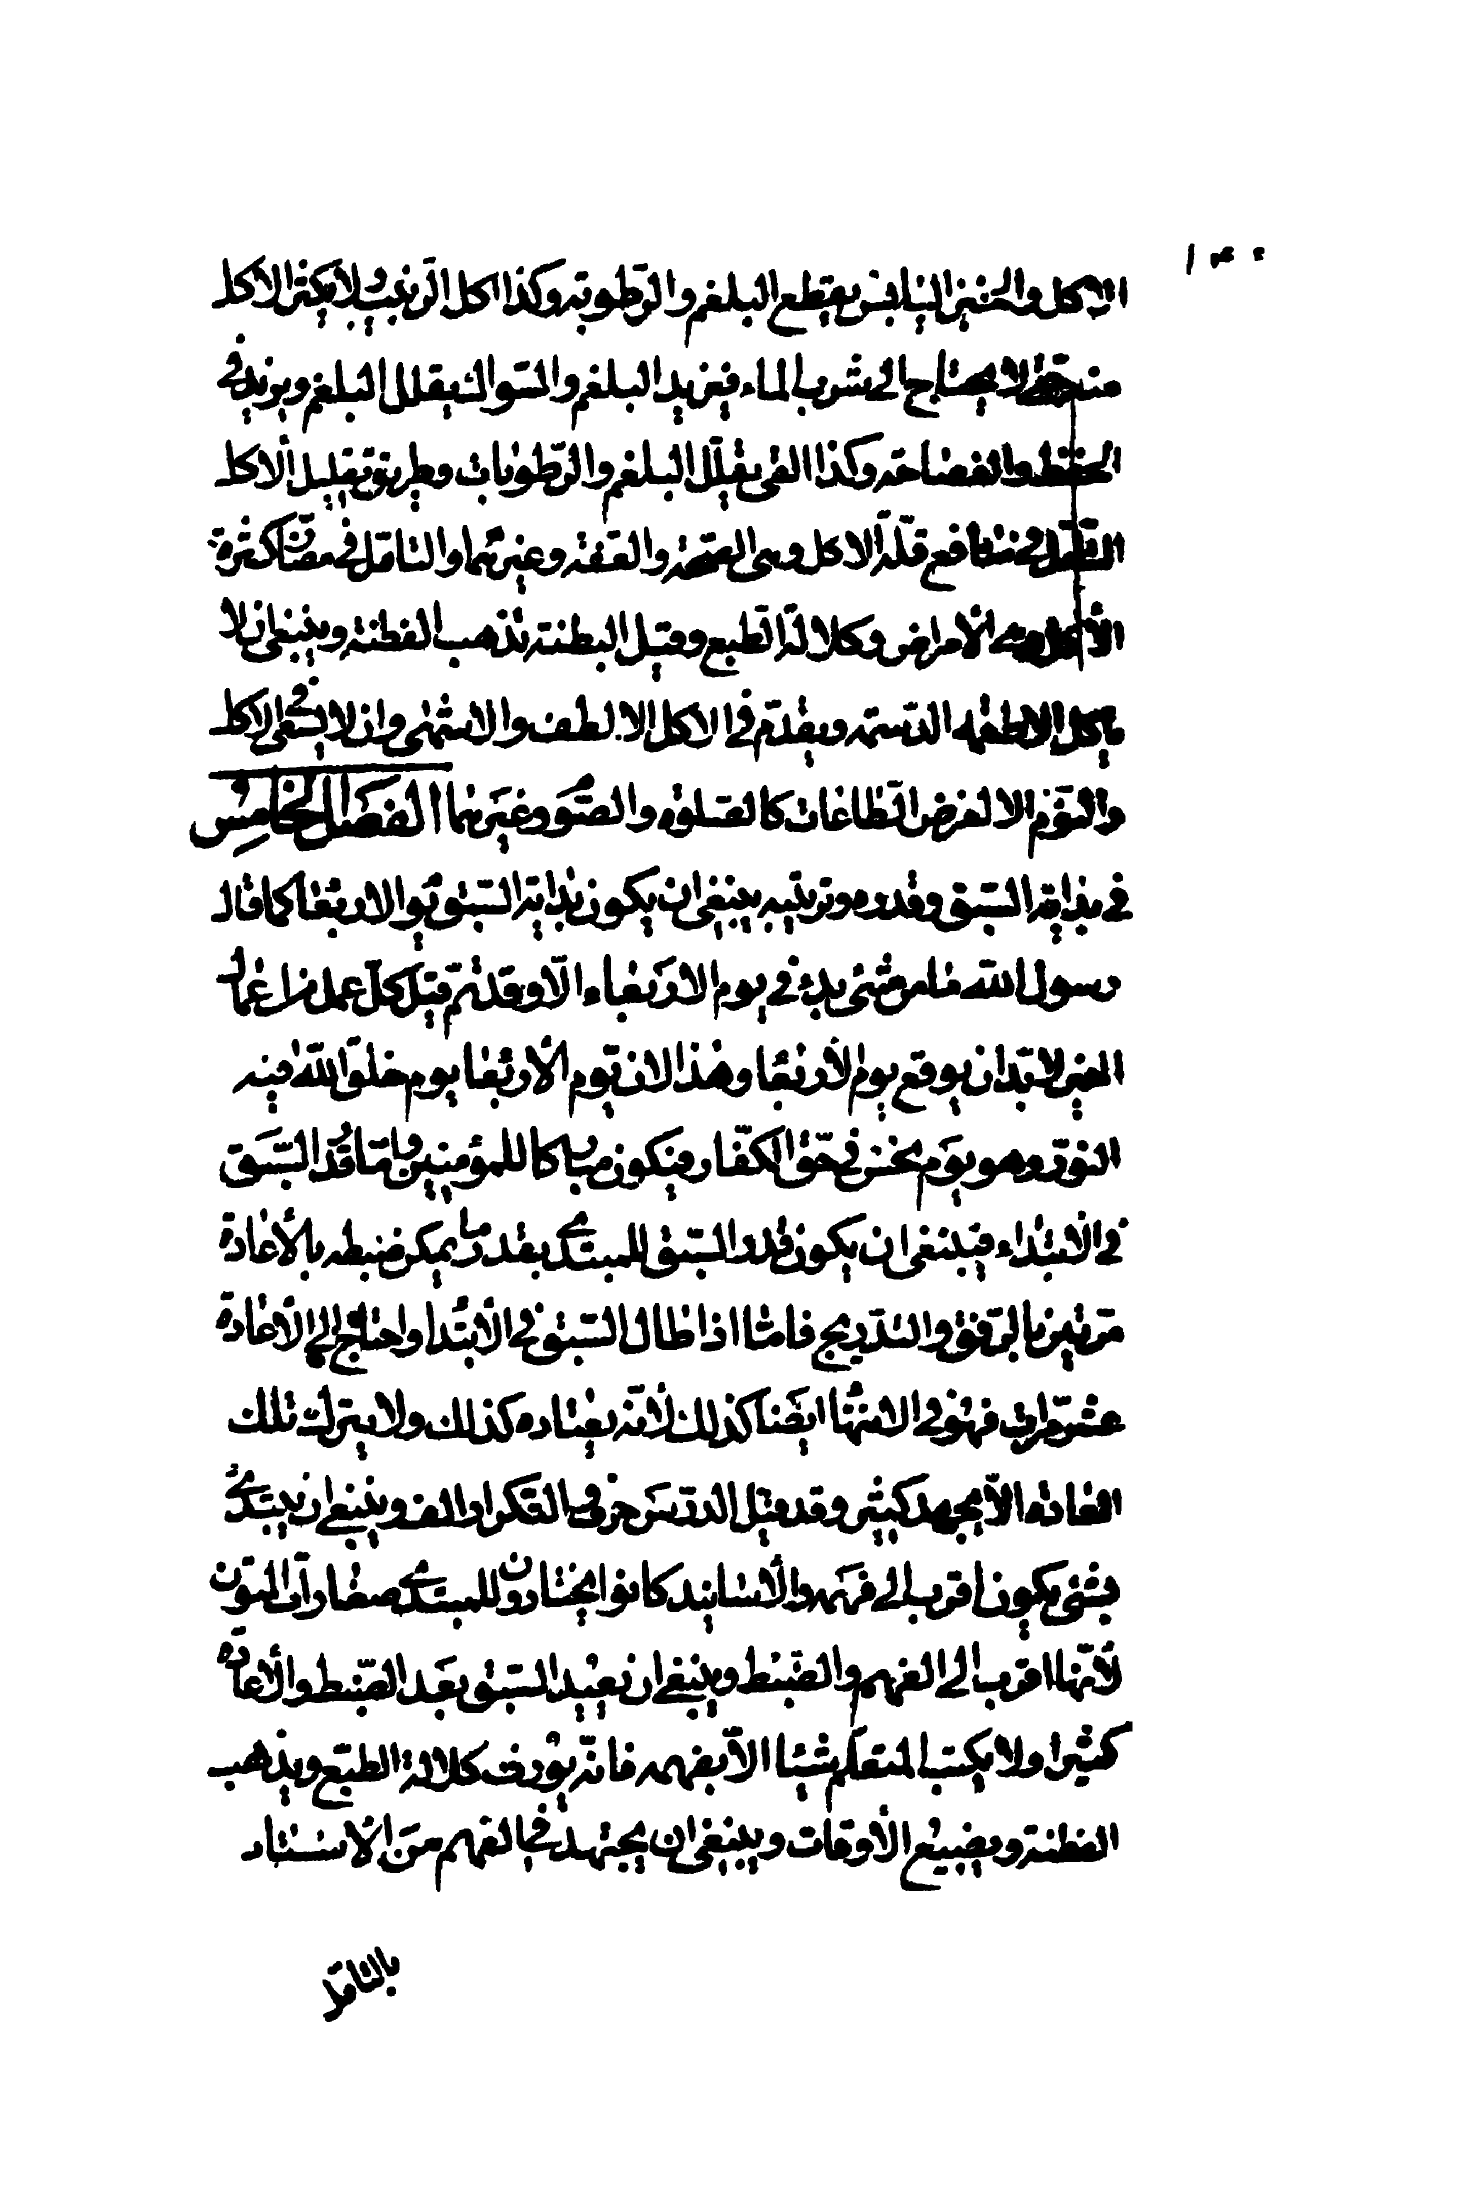 ١٣٠
الاكل والخبز اليابس يقطع البلغم والرّطوبة وكذا اكل الزبيب ولا يكثر الاكل
منه حتى لا يحتاج الى شرب الماء فيزيد البلغم والسّواك يقلل البلغم ويزيد فى
الحفظ والفصاحة وكذا القى يقلّل البلغم والرّطوبات وطريق تقليل الأكل
التّأمّل فى منافع قلّة الاكل وهى الصّحّة والعفّة وغيرهما والتامّل فى مضارّ كثرة
الأكل وهى الأمراض وكلالة الطّبع وقيل البطنة تذهب الفطنة وينبغى ان لا
ياكل الاطعمة الدّسمة ويقدّم فى الاكل الالطف والاشتهى وان لا الاكل
والنّوم الا لغرض الطّاعات كالصلوة والصّوم وغيرهما الفصل الخامس
فى بداية السّبق وقدره وترتيبه ينبغى ان يكون بداية السّبق يوم الاربعا كما قال
رسول اللّه ما من شئ بدئ فى يوم الاربعاء الّا وقد تمّ قيل كلّ عمل من اعمال
الخير لابدّ ان يوقع يوم الأربعا وهذا لان يوم الأربعا يوم خلق اللّه فيه
النّور وهو يوم نحس فى حقّ الكفّار فيكون مباركا للمؤمنين وامّا قدر السّبق
فى الابتداء فينبغى ان يكون قدر السّبق للمبتدى بقدر ما يمكن ضبطه بالأعادة
مرّتين بالرّفق والتّدريج فامّا اذا طال السّبق فى الأبتدا واحتاج الى الأعادة
عشر مرّات فهو فى الانتها ايضا كذلك لانّه يعتاده كذلك ولا يترك تلك
العادة الّا بجهد كثير وقد قيل الدرس حرف والتّكرار الف وينبغى ان يبتدى
بشئ يكون اقرب الى فهمه والأساتيد كانوا يختارون للمبتدى صغارات المتون
لأنّها اقرب الى الفهم والضّبط وينبغى ان يعيد السّبق بعد الضّبط والأعادة
كثيرا ولا يكتب المتعلّم شيئا الّا يفهمه فانّه يورث كلالة الطبّع ويذهب
الفطنة ويضييع الأوقات وينبغى ان يجتهد فى الفهم من الاستاد
بالتامّل